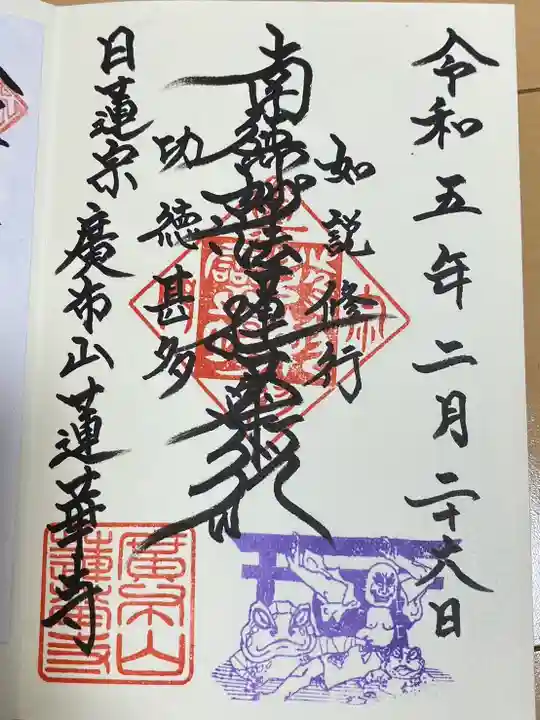 令和五年二月二十六日
如説修行
南無妙法蓮華経
功徳甚多
日蓮宗 廣布山蓮華寺
廣布山
蓮華寺